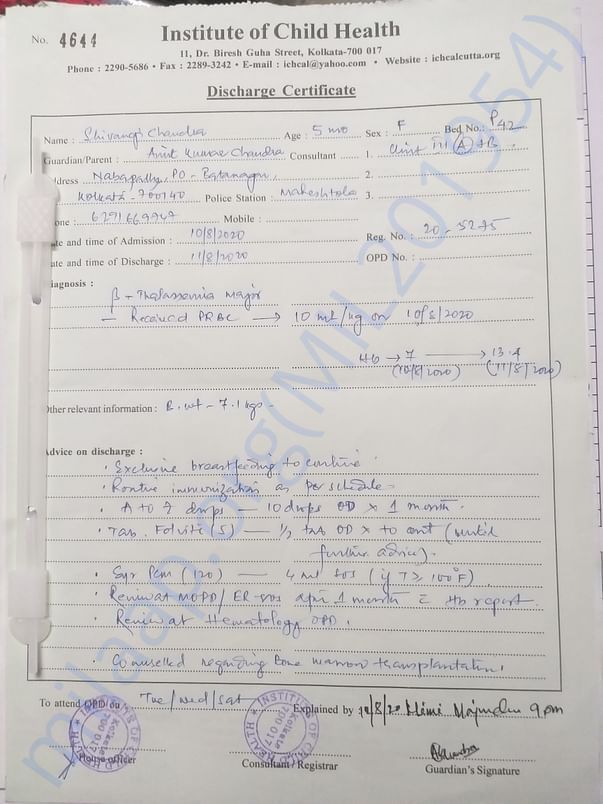 No. 4644
Institute of Child Health
11, Dr. Biresh Guha Street, Kolkata-700 017
Phone : 2290-5686 • Fax : 2289-3242 • E-mail : ichcal@yahoo.com • Website : ichcalcutta.org
Discharge Certificate
Name : Shivangi Chandra Age : 5 mo Sex : F Bed No.: P42
Guardian/Parent : Amit Kumar Chandra Consultant 1. Unit III (A)+B
ddress Nabapally, PO - Batanagar, 2.
Kolkata - 700140 Police Station : Maheshtola 3.
one : Mobile :
ate and time of Admission : 10/8/2020 Reg. No. : 20-5275
ate and time of Discharge : 11/8/2020 OPD No. :
iagnosis :
β - Thalassemia Major
— Received PRBC → 10 ml/kg on 10/8/2020
Hb → 7 → 13.4
(10/8/2020) (11/8/2020)
Other relevant information : B.wt - 7.1 kgs -
Advice on discharge :
• Exclusive breastfeeding to continue
• Routine immunization as per schedule -
• A to Z drops — 10 drops OD x 1 month.
• Tab. Folvite (5) — 1/2 tab OD x to cont (until
further advice).
• Syr Pcm (120) — 4 ml sos (if T ≥ 100°F)
• Review at MOPD/ ER-sos after 1 month c̄ Hb report.
• Review at Hematology OPD.
• Counselled regarding bone marrow transplantation.
To attend OPD on Tue/wed/sat Explained by 9 pm
INSTITUTE OF CHILD HEALTH
Kolkata
700 017
INSTITUTE OF CHILD HEALTH
Kolkata
700 017
House officer Consultant / Registrar Guardian's Signature
milaap.org(MIL201954)